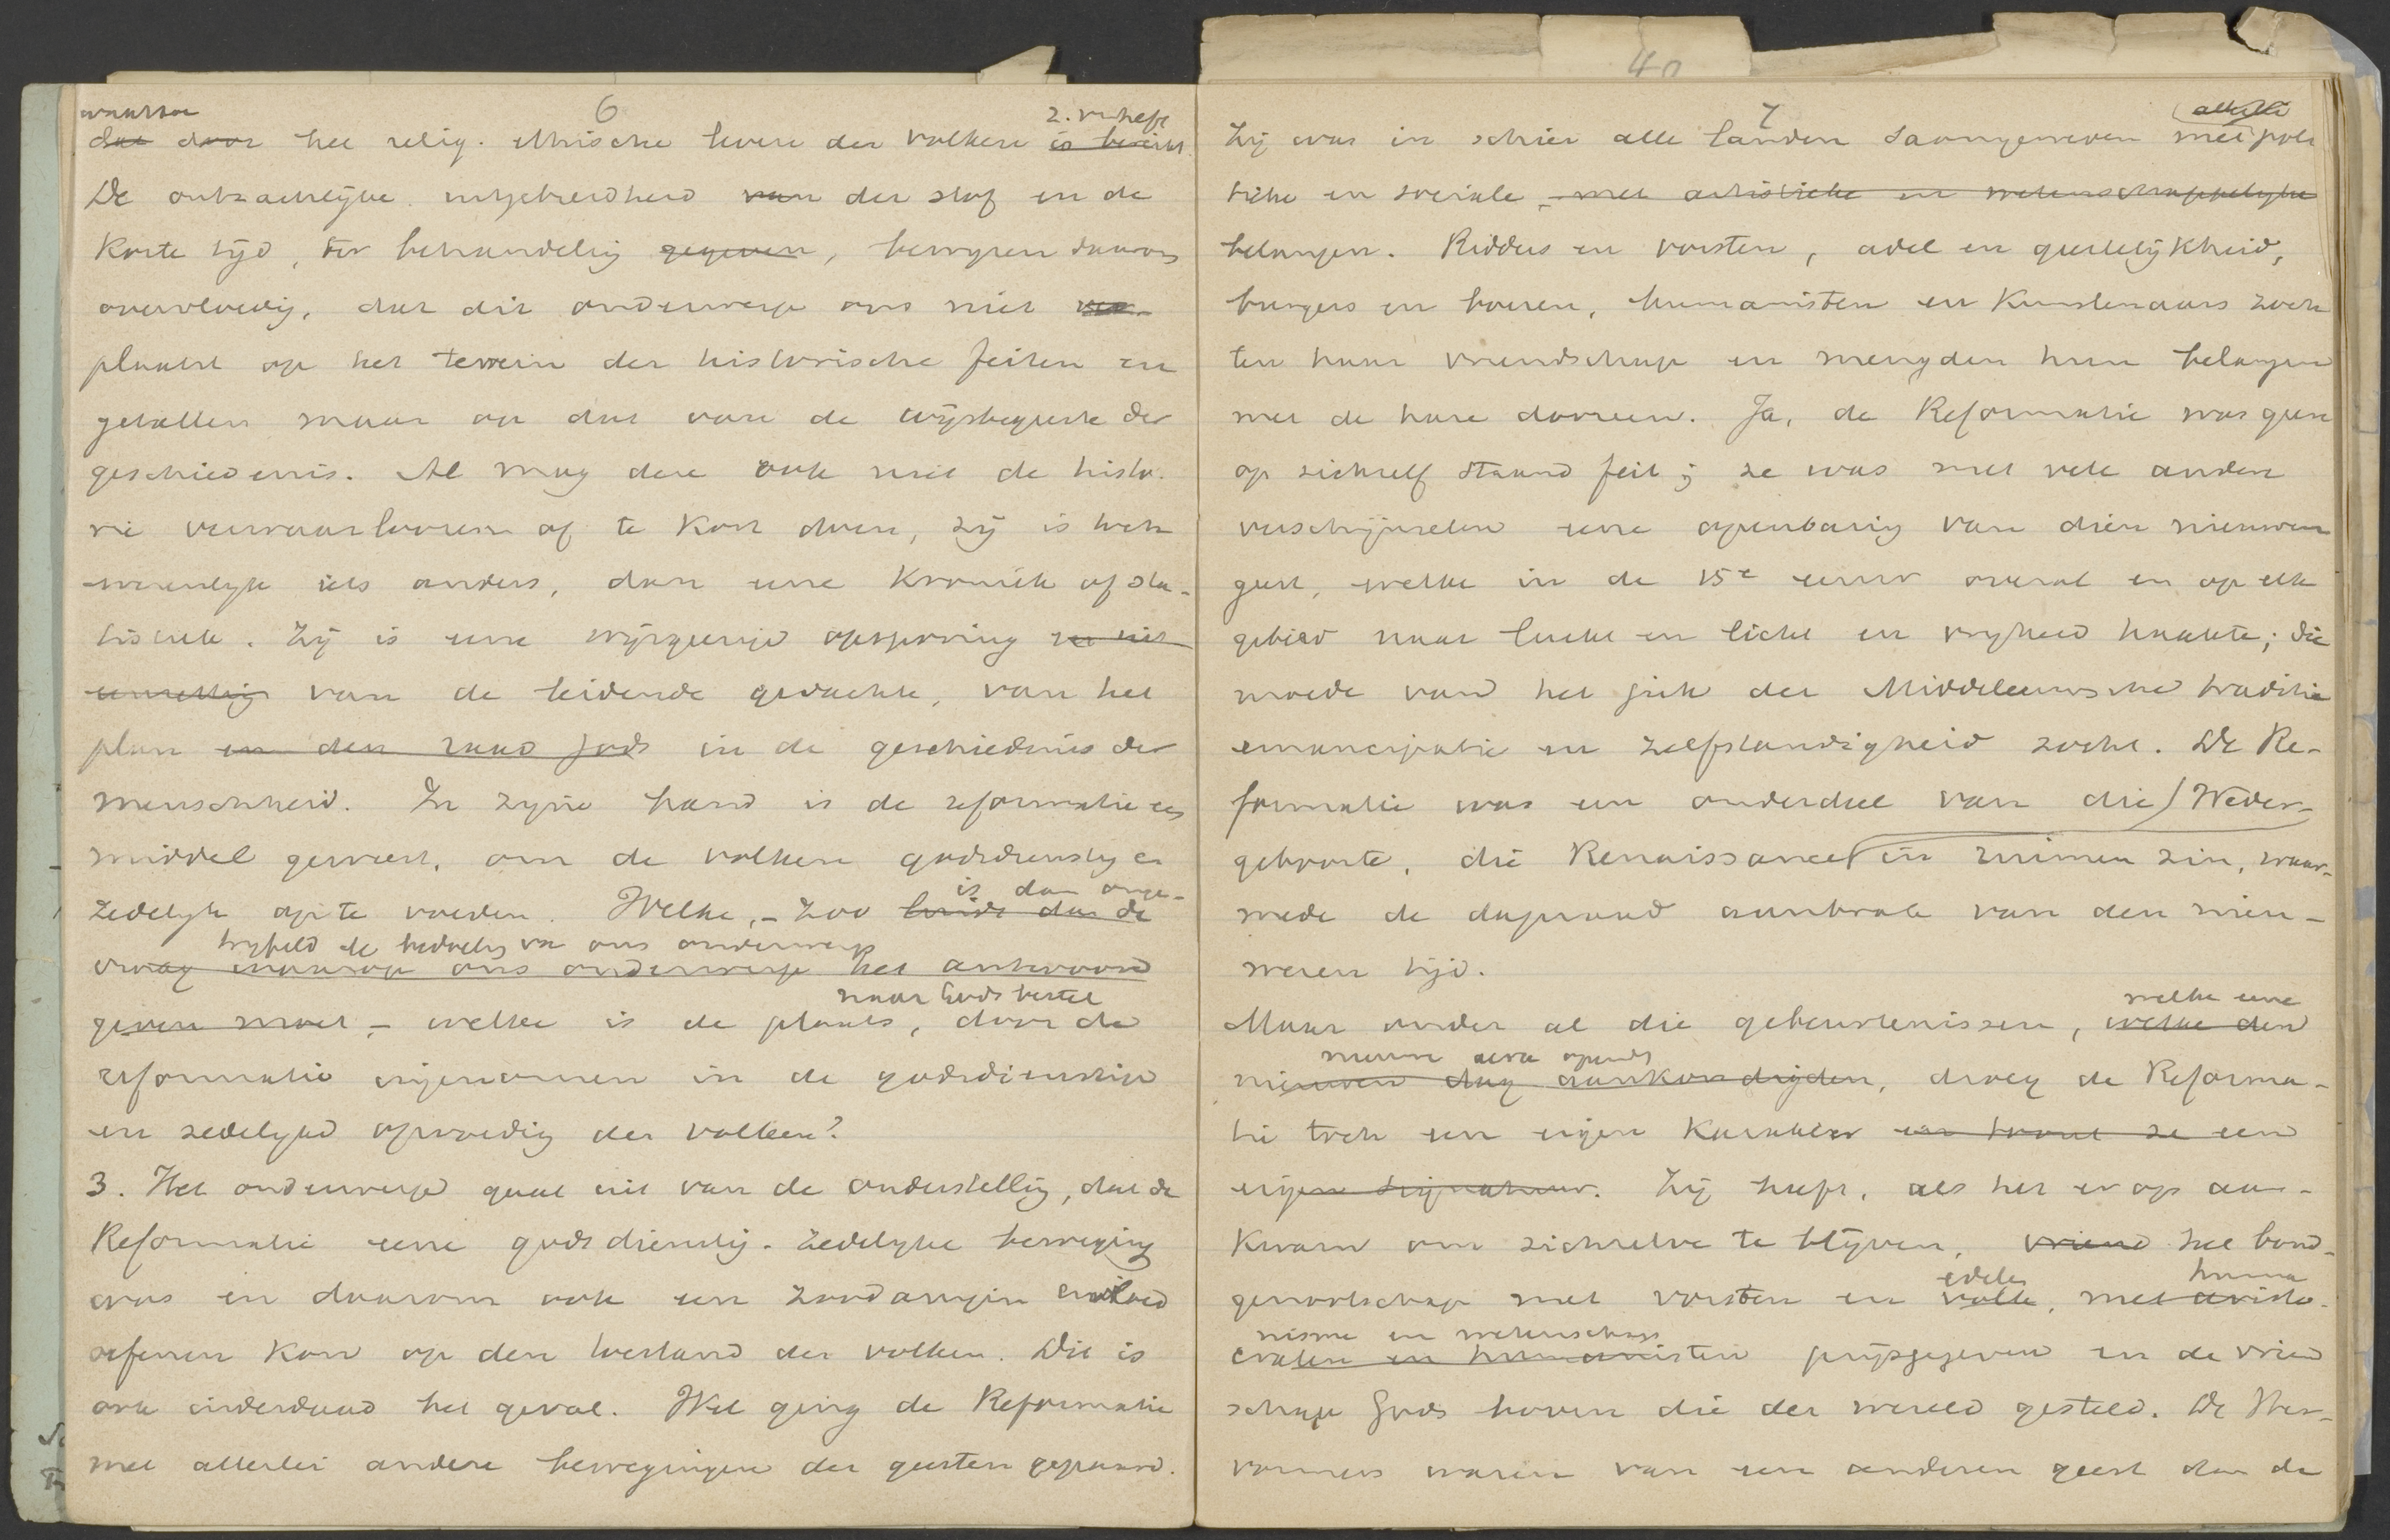 6
waartoe 2. verheft
dat door het relig. ethische leven der volken is bereikt.
De ontzachlijke uitgebreidheid van der stof en de
korte tijd, ter behandeling gegeven, bewijzen daarom
overvloedig, dat dit onderwerp ons niet
plaatst op het terrein der historische feiten en
getallen maar op dat van de wijsbegeerte der
geschiedenis. Al mag deze ook niet de histo-
rie verwaarloozen of te kort doen, zij is toch
wezenlijk iets anders, dan eene Kroniek of sta-
tistiek. Zij is eene wijsgeerige opsporing
van de leidende gedachte, van het
plan en den raad Gods in de geschiedenis der
menschheid. In zijne hand is de reformatie een
middel geweest, om de volken godsdienstig en
is dan onge-
zedelijk op te voeden. Welke, - zoo luidt dan de
twijfeld de bedoeling van ons onderwerp
vraag waarop ons onderwerp het antwoord
naar Gods bestel
geven moet - welke is de plaats, door de
reformatie ingenomen in de godsdienstige
en zedelijke opvoeding der volken?
3. Het onderwerp gaat uit van de onderstelling, dat de
Reformatie eene godsdienstig-zedelijke beweging
was en daarom ook een zoodanigen invloed
oefenen kon op den toestand der volken. Dit is
ook inderdaad het geval. Wel ging de Reformatie
met allerlei andere bewegingen der geesten gepaard.
40
7
allerlei
Zij was in schier alle landen saamgeweven met poli
tieke en sociale, met artistieke en wetenschappelijke
belangen. Ridders en vorsten, adel en geestelijkheid,
burgers en boeren, humanisten en Kunstenaars zoch
ten haar vriendschap en mengden hun belangen
met de hare dooreen. Ja, de Reformatie was geen
op zichzelf staand feit; ze was met vele andere
verschijnselen eene openbaring van dien nieuwen
geest, welke in de 15e eeuw overal en op elk
gebied naar lucht en licht en vrijheid haakte; die
moede van het juk der Middeleeuwsche traditie
emancipatie en zelfstandigheid zocht. De Re-
formatie was een onderdeel van die Weder-
geboorte, die Renaissance in ruimen zin, waar-
mede de dageraad aanbrak van den nieu-
weren tijd.
welke eene
Maar onder al die gebeurtenissen, welke den
nieuwe aera opende
nieuwen dag aankondigden, droeg de Reforma-
tie toch een eigen Karakter en troeg ze een
eigen signatuur. Zij heeft, als het er op aan-
Kwam om zichzelve te blijven, vriend het bond-
edelen huma
genootschap met vorsten en volk, met aristo-
nisme en wetenschap
craten en humanisten prijsgegeven en de vriend
schap Gods boven die der wereld gesteld. De Her-
vormers waren van een anderen geest dan de